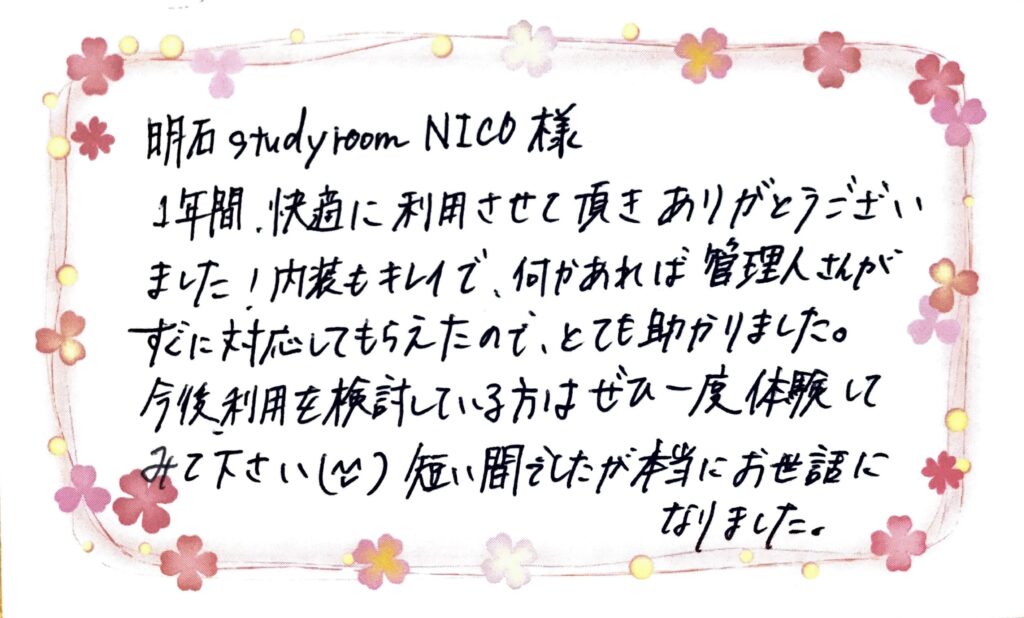 明石studyroom NICO様
1年間、快適に利用させて頂きありがとうござい
ました！内装もキレイで、何かあれば管理人さんが
すぐに対応してもらえたので、とても助かりました。
今後利用を検討している方はぜひ一度体験して
みて下さい(^^)短い間でしたが本当にお世話に
なりました。